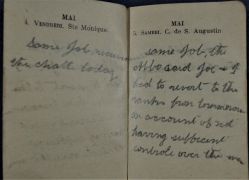 MAI
4. VENDREDI. Ste Monique.
Same Job
the chalk today
MAI
5. SAMEDI. C. de S. Augustin
same Job, the
said Joe & I
had to revert to the
ranks from tomorrow
on account of not
having sufficient
controle over the men